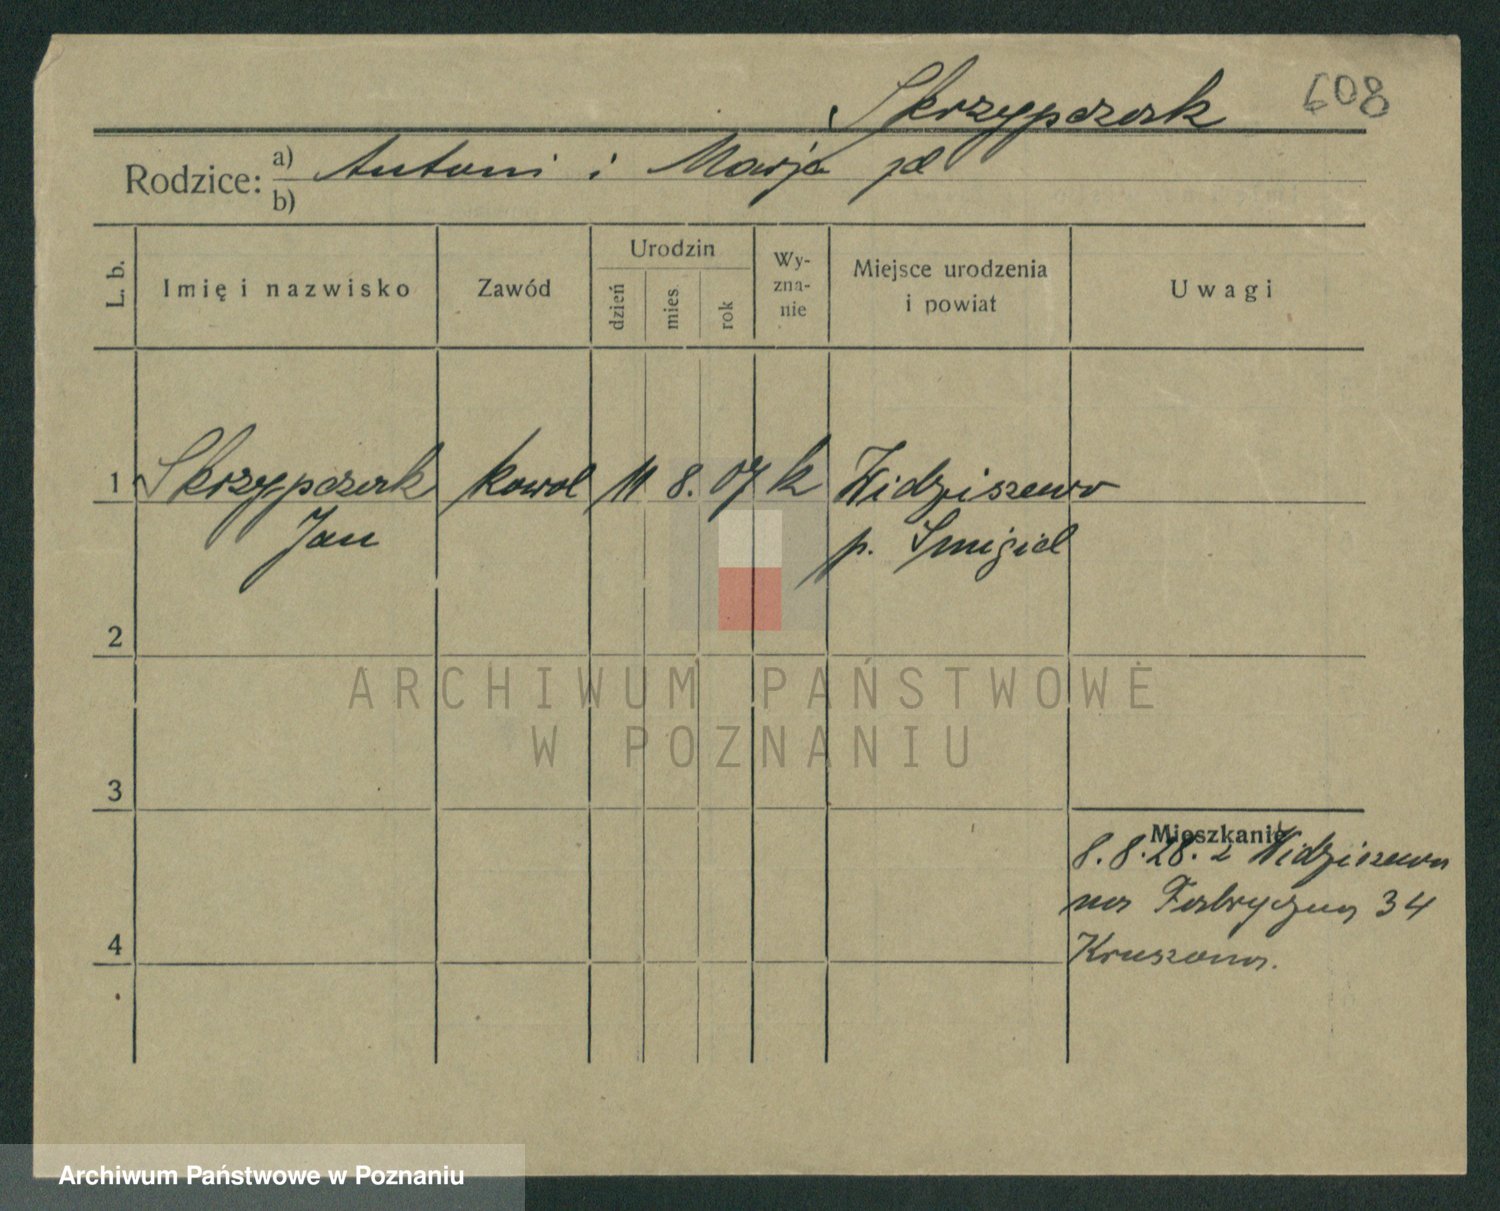 Skrzypczak 608
Rodzice: a) Antoni i Marja
b)
L. b. Imię i nazwisko Zawód Urodzin dzień mies rok Wy-zna-nie Miejsce urodzenia i powiat Uwagi
1 Skrzypczak kowal 11 8. 07 k Widziszewo
Jan p. Śmigiel
2
ARCHIWUM PAŃSTWOWE
W POZNANIU
3
Mieszkanie
8.8.28. z Widziszewa
na Fabryczną 34
4
Archiwum Państwowe w Poznaniu